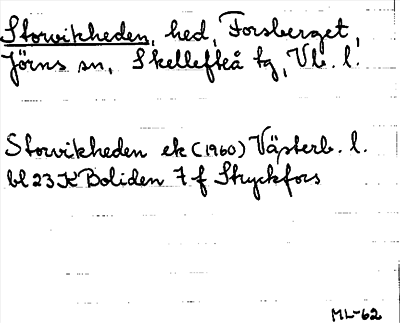 Storvikheden, hed, Forsberget,
Jörns sn, Skellefteå tg, Vb. l.
Storvikheden ek (1960) Västerb. l.
bl 23 K Boliden 7 f Stryckfors
ML-62